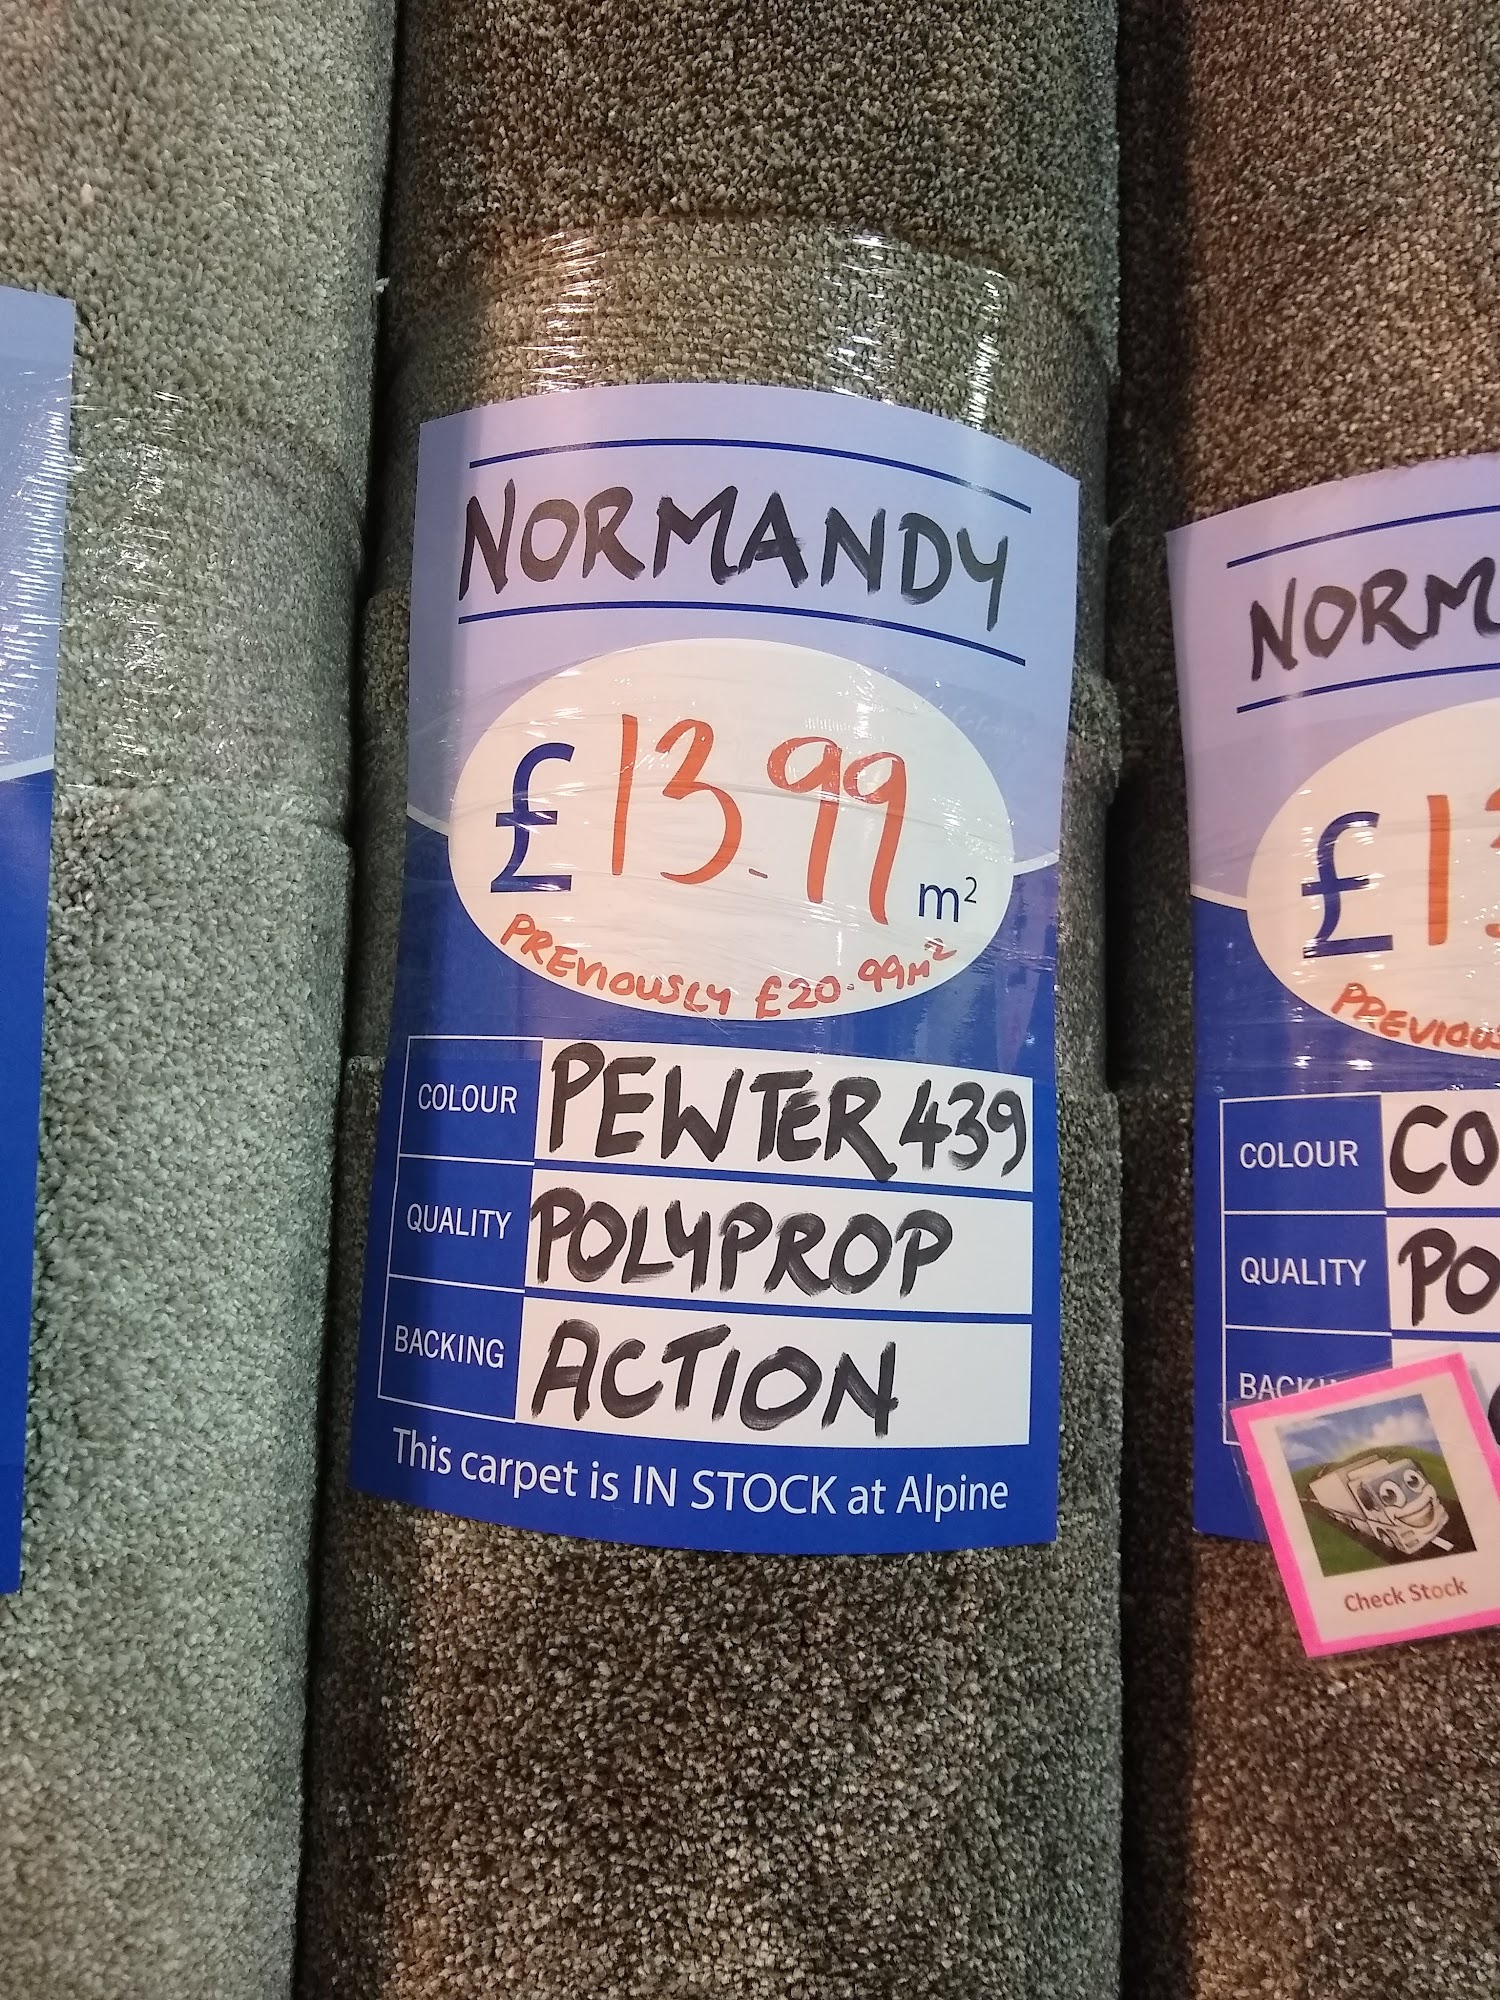 NORMANDY
£13.99 m²
PREVIOUSLY £20.99M²
COLOUR PEWTER 439
QUALITY POLYPROP
BACKING ACTION
This carpet is IN STOCK at Alpine
£
COLOUR
QUALITY
Check Stock